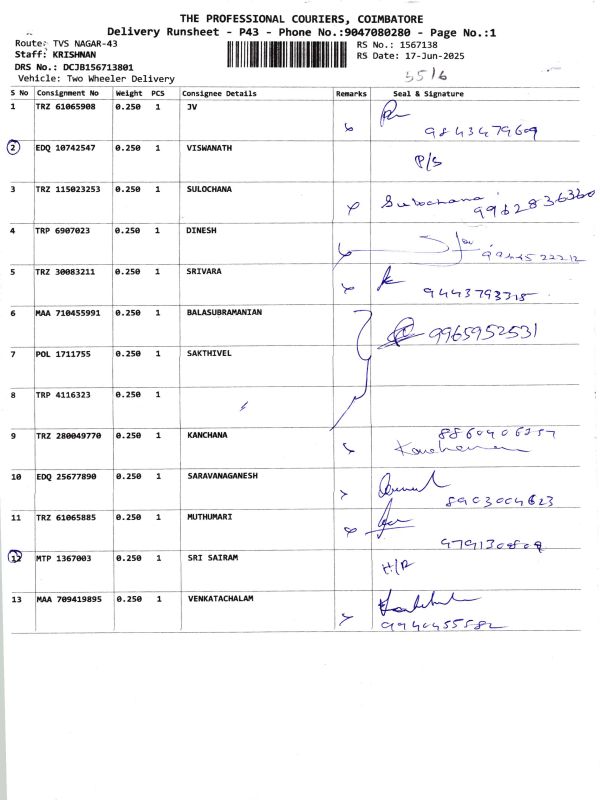 THE PROFESSIONAL COURIERS, COIMBATORE
Delivery Runsheet - P43 - Phone No.:9047080280 - Page No.:1
Route: TVS NAGAR-43 RS No.: 1567138
Staff: KRISHNAN RS Date: 17-Jun-2025
DRS No.: DCJB156713801
Vehicle: Two Wheeler Delivery
S No Consignment No Weight PCS Consignee Details Remarks Seal & Signature
1 TRZ 61065908 0.250 1 JV
9843479609
2 EDQ 10742547 0.250 1 VISWANATH
P/S
3 TRZ 115023253 0.250 1 SULOCHANA
Sulochana
4 TRP 6907023 0.250 1 DINESH
5 TRZ 30083211 0.250 1 SRIVARA
9443793315
6 MAA 710455991 0.250 1 BALASUBRAMANIAN
9965952531
7 POL 1711755 0.250 1 SAKTHIVEL
8 TRP 4116323 0.250 1
9 TRZ 280049770 0.250 1 KANCHANA
10 EDQ 25677890 0.250 1 SARAVANAGANESH
8903004623
11 TRZ 61065885 0.250 1 MUTHUMARI
12 MTP 1367003 0.250 1 SRI SAIRAM
H/R
13 MAA 709419895 0.250 1 VENKATACHALAM
9940455582